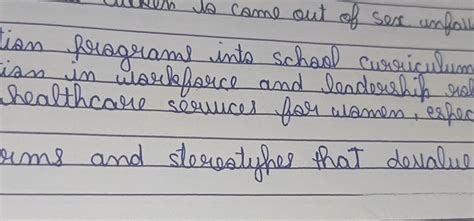 to come out of sex
tion programs into school curriculum
ion in workforce and leadership
healthcare services for women, espec
orms and stereotypes that devalue